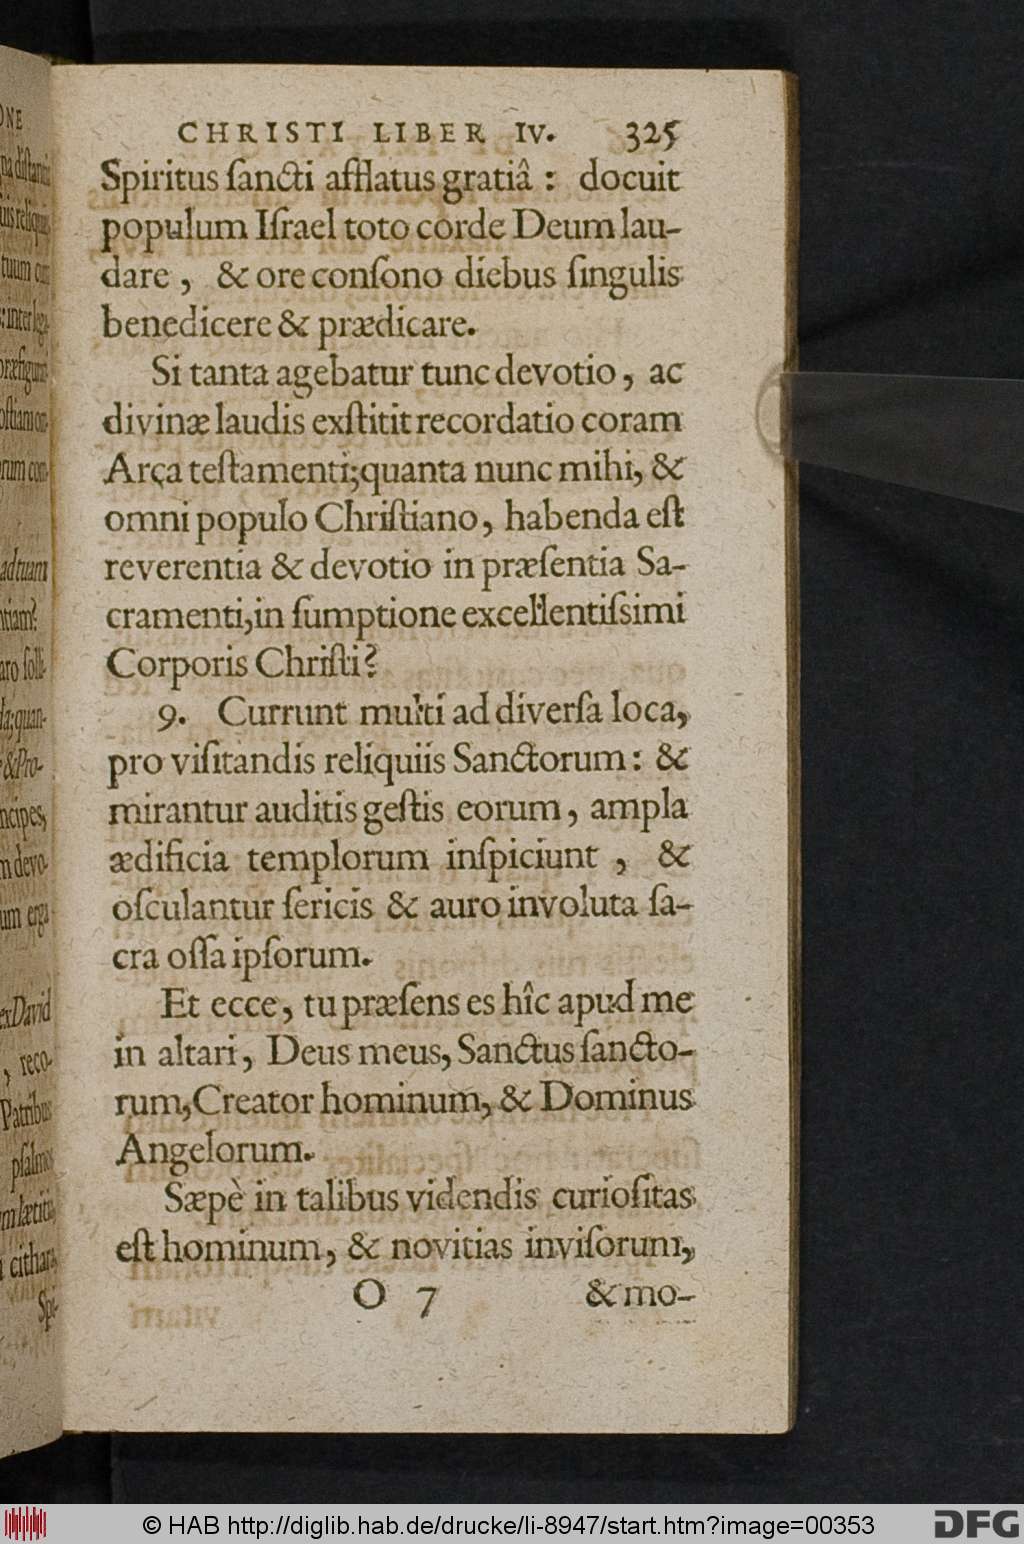 CHRISTI LIBER IV. 325
Spiritus ſancti afflatus gratiâ : docuit
populum Iſrael toto corde Deum lau-
dare , & ore conſono diebus ſingulis
benedicere & prædicare.
Si tanta agebatur tunc devotio, ac
divinæ laudis exſtitit recordatio coram
Arca teſtamenti; quanta nunc mihi, &
omni populo Chriſtiano, habenda eſt
reverentia & devotio in præſentia Sa-
cramenti, in ſumptione excellentiſsimi
Corporis Chriſti?
9. Currunt multi ad diverſa loca,
pro viſitandis reliquiis Sanctorum: &
mirantur auditis geſtis eorum, ampla
ædificia templorum inſpiciunt , &
oſculantur ſericis & auro involuta ſa-
cra oſſa ipſorum.
Et ecce, tu præſens es hîc apud me
in altari, Deus meus, Sanctus ſancto-
rum, Creator hominum, & Dominus
Angelorum.
Sæpè in talibus videndis curioſitas
eſt hominum, & novitias inviſorum,
O 7 & mo-
ONE
tuum
ad tuam
&Pro-
ncipes,
m devo-
um erga
ex David
, reco-
Patribus
pſalmos
cithara,
Spi-
© HAB http://diglib.hab.de/drucke/li-8947/start.htm?image=00353
DFG